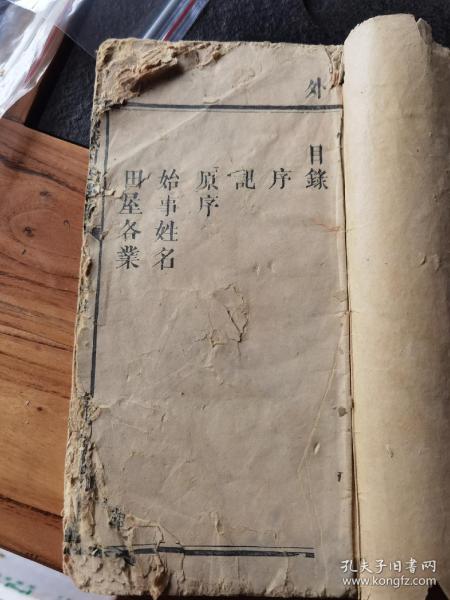 外
目錄
序
記
原序
始事姓名
田屋各業
孔夫子旧书网
www.kongfz.com